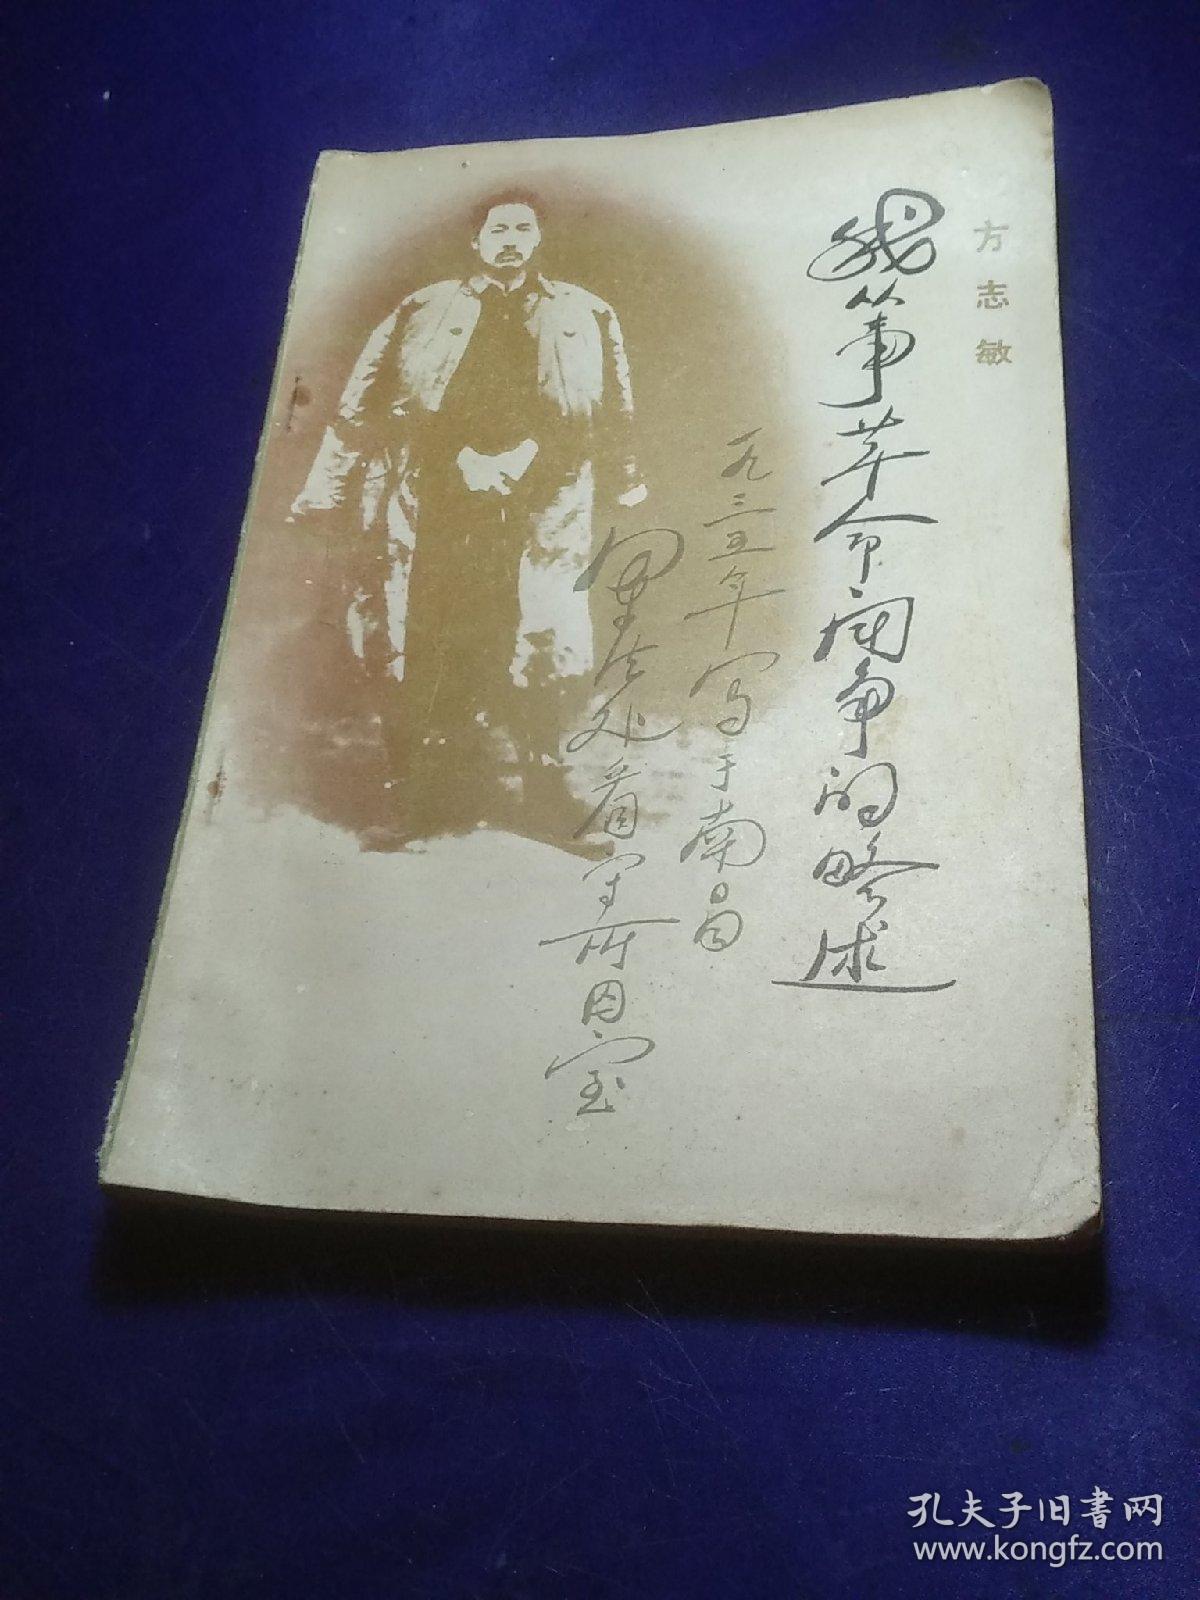 方志敏
我从事革命斗争的略述
一九三五年写于南昌
军法处看守所囚室
孔夫子旧书网
www.kongfz.com